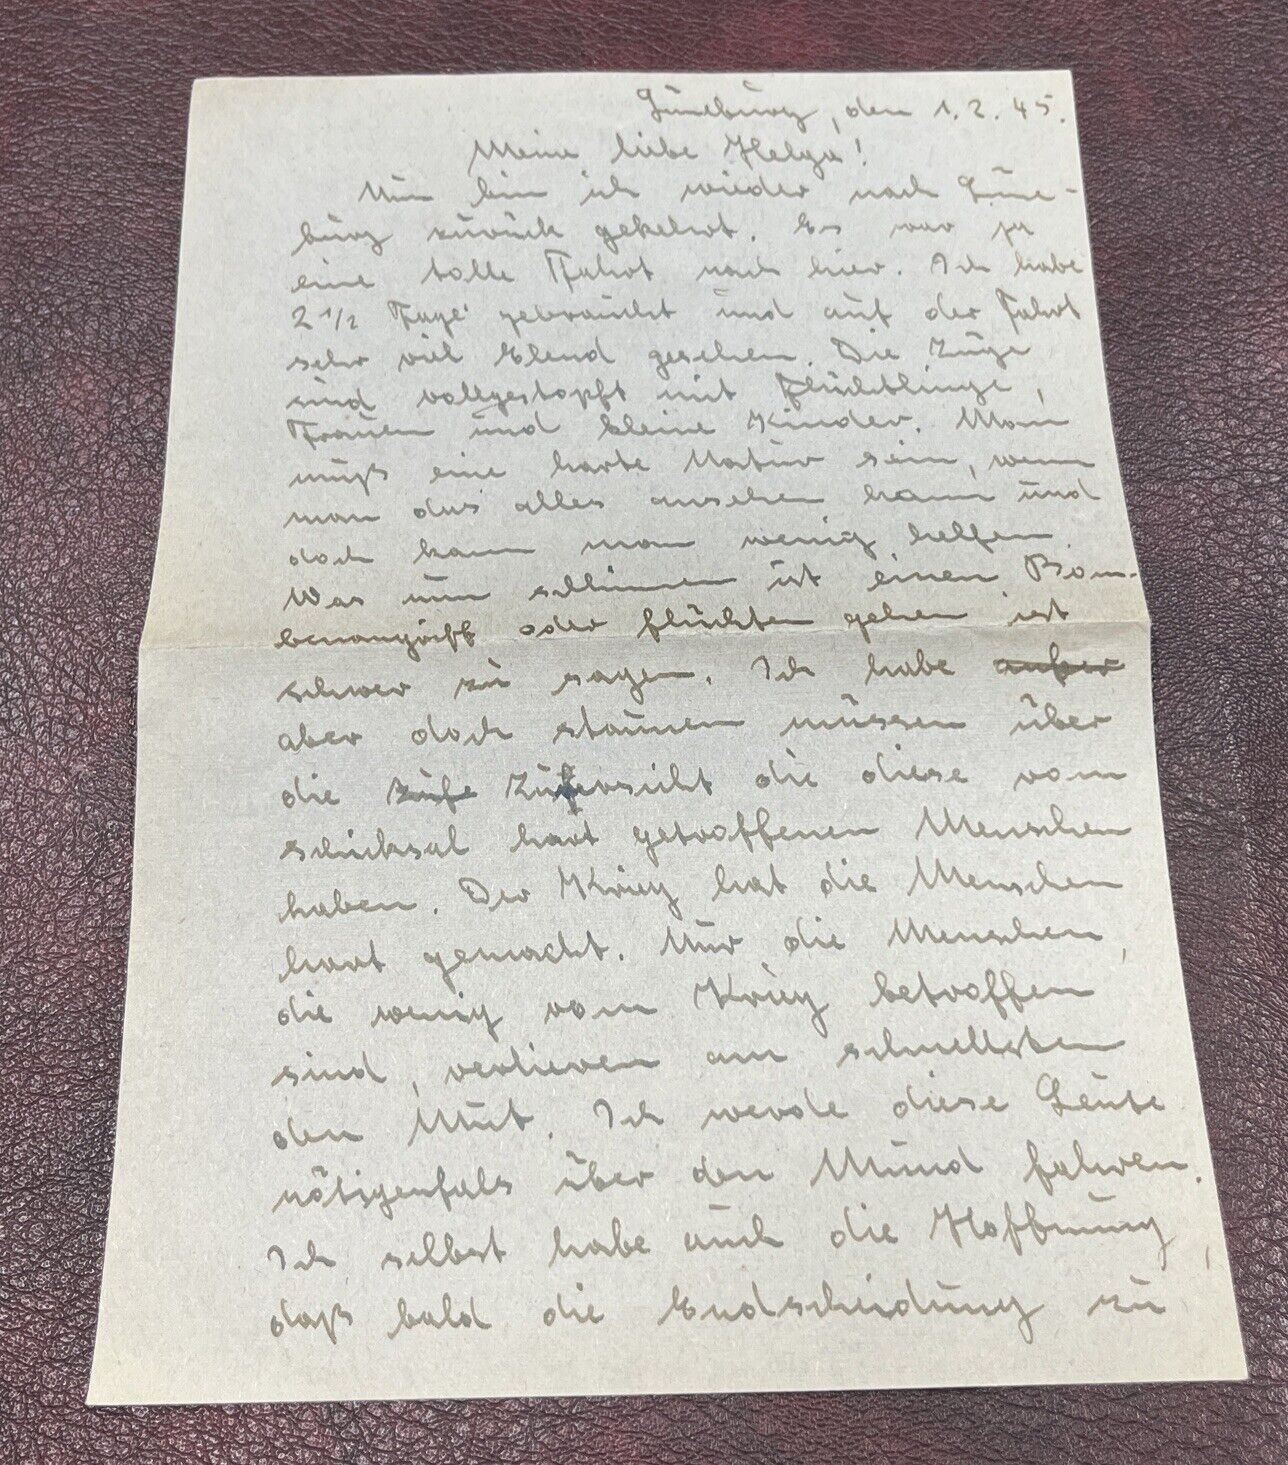 Lüneburg, den 1.2.45.
Meine liebe Helga!
Nun bin ich wieder nach Lüne-
burg zurück gekehrt. Es war ja
eine tolle Fahrt nach hier. Ich habe
2 1/2 Tage gebraucht und auf der Fahrt
sehr viel Elend gesehen. Die Züge
sind vollgestopft mit Flüchtlinge,
Frauen und kleine Kinder. Man
muß eine harte Natur sein, wenn
man das alles ansehen kann und
doch kann man wenig helfen.
Was nun schlimmer ist einen Bom-
benangriff oder flüchten gehen ist
schwer zu sagen. Ich habe
aber doch staunen müssen über
die Zufersicht die diese vom
schicksal hart getroffenen Menschen
haben. Der Krieg hat die Menschen
hart gemacht. Nur die Menschen,
die wenig vom Krieg betroffen
sind, verlieren am schnellsten
den Mut. Ich werde diese Leute
nötigenfals über den Mund fahren.
Ich selbst habe auch die Hoffnung,
daß bald die Endscheidung zu